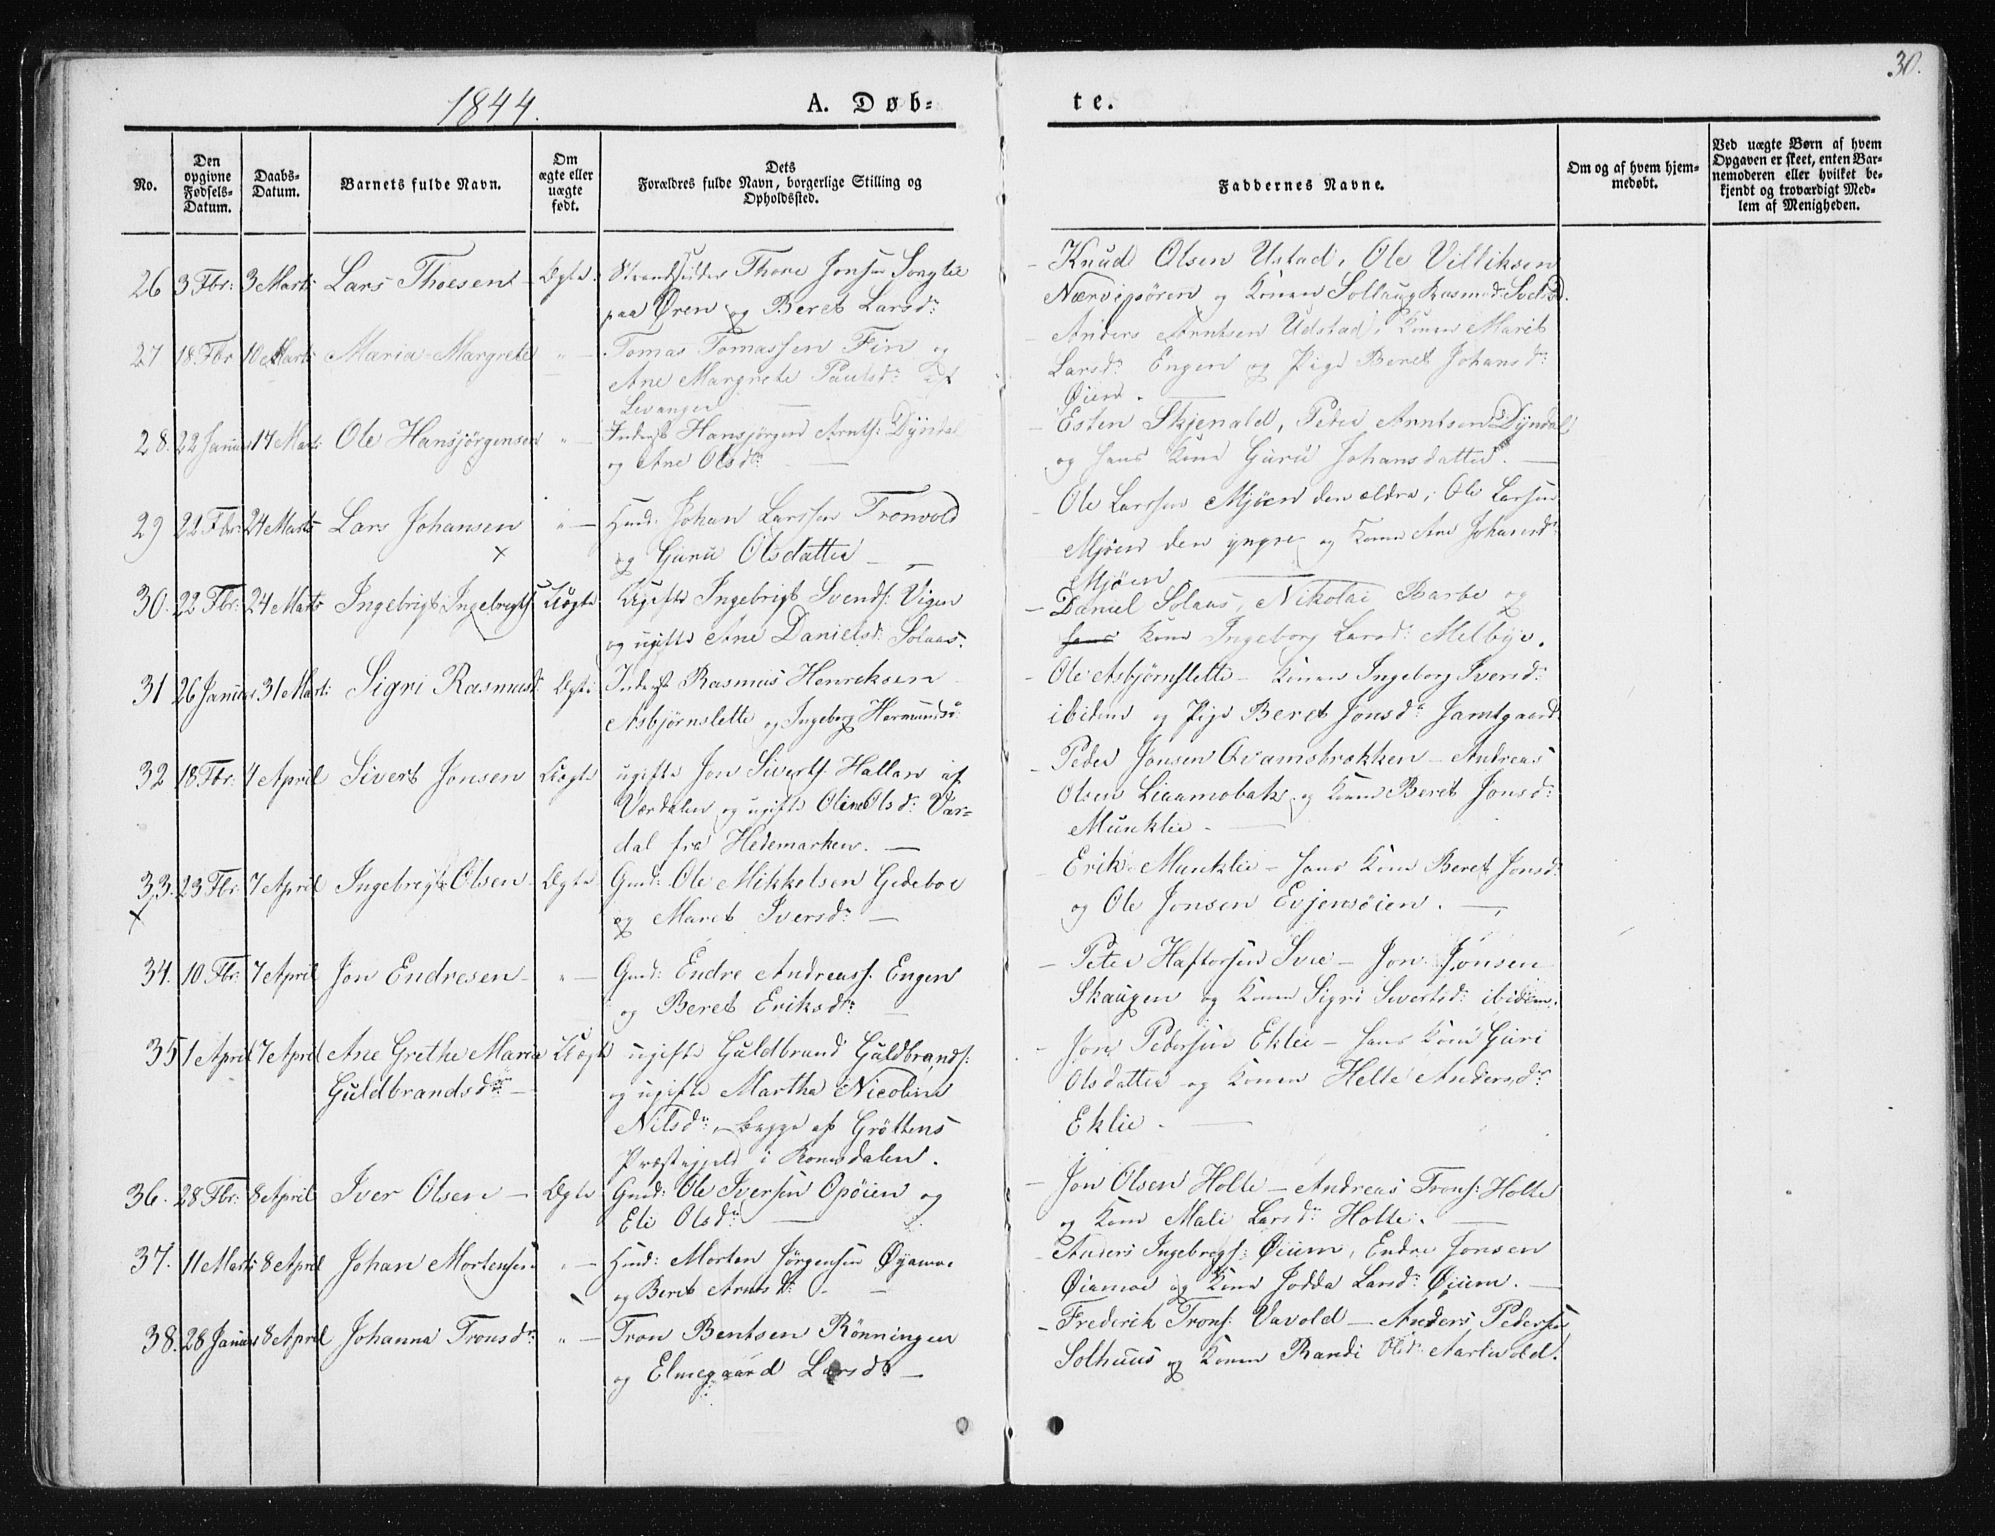 30.
1844.
A. Døb=
te.
No.
Den opgivne Fødsels-Datum.
Daabs-Datum.
Barnets fulde Navn.
Om ægte eller uægte født.
Dets Forældres fulde Navn, borgerlige Stilling og Opholdssted.
Faddernes Navne.
Om og af hvem hjemmedøbt.
Ved uægte Børn af hvem Opgaven er skeet, enten Barnemoderen eller hvilket bekjendt og troværdigt Medlem af Menigheden.
26 3 Fbr: 3 Marts Lars Thoesen Ægte Thore Jonsen
paa Øren og Beret Larsd:
Knud Olsen Ustad, Ole Villiksen
og Konen Rasmusd:
27 18 Fbr 10 Marts Maria Margrete " Tomas Tomassen Fin og
Ane Margrete Paulsd: af
Levanger
Anders Arntsen Udstad, Konen Marit
Larsd: Engen og Pige Beret Johansd:
Øien.
28. 22 Januar 14 Marts Ole Hansjørgensen " Inderst Hansjørgen Arnts: Dyndal
og Ane Olsd:
Esten Skjenald, Peter Arntsen Dyndal
og hans Kone Guru Johansdatter.
29 22 Fbr: 24 Marts Lars Johansen " Huusd: Johan Larssen Tronvold
og Guru Olsdatter
Ole Larssen Mjøen den eldre, Ole Larsen
Mjøen den yngre og Konen Ane Johansd:
Mjøen
30. 22 Fbr: 24 Marts Ingebrigt Ingebrigts: Uægte Ugifte Ingebrigt Svends: Vigen
og ugifte Ane Danielsd: Solaas.
Daniel Solaas, Nikolai Barbo og
hans Kone Ingeborg Larsd: Melbye.
31 26 Januar 31 Marts Sigri Rasmusd: Ægte Inderst Rasmus Henriksen
Asbjørnslette og Ingeborg Hermundsd:
Ole Asbjørnslette - Konen Ingeborg Iversd:
ibidem og Pige Beret Jonsd: Jamtgaard
32 18 Fbr: 4 April Sivert Jonsen Uægte ugifte Jon Siverts: Hallan af
Værdalen og ugifte Oline Olsd: Var-
dal fra Hedemarken.
Peder Jonsen Qvamsbrækken - Andreas
Olsen Liaamobak og Konen Beret Jonsd:
Munklie
33. 23 Fbr. 7 April Ingebrigt Olsen Ægte Gmd: Ole Mikkelsen Gedeboe
og Maret Iversd:
Erik Munklie - hans Kone Beret Jonsd:
og Ole Jonsen Evjensøien.
34. 10 Fbr: 7 April Jon Endresen " Gmd: Endre Andreass. Engen
og Beret Eriksd:
Peter Haftorsen Svee - Jon Jonsen
Skaugen og Konen Sigri Sivertsd: ibidem.
35 1 April 7 April Ane Grethe Maria Uægte ugifte Guldbrand Guldbrands:
Guldbrandsd: og ugifte Martha Nicoline
Nilsd:, begge af Grøttens
Præstegjeld i Romsdalen.
Jon Pedersen Eklie - hans Kone Guri
Olsdatter og Konen Helte Andersd:
Eklie
36. 28 Fbr: 8 April Iver Olsen Ægte Gmd: Ole Iversen Opøien og
Eli Olsd:
Jon Olsen Holte - Andreas Trons: Holte
og Kone Mali Larsd: Holte.
37. 11 Marts 8 April Johan Mortensen " Huusd: Morten Jørgensen Øyamoe
og Beret Arntsd:
Anders Ingebregts: Øium, Endre Jonsen
Øiamoe og Kone Jodda Larsd: Øium.
38. 28 Januar 8 April Johanna Tronsd: " Tron Bentsen Rønningen
og Elmegaard Larsd:
Frederik Trons: Vavold - Anders Pedersen
Solhuus og Konen Randi Olsd: Aarlivold.